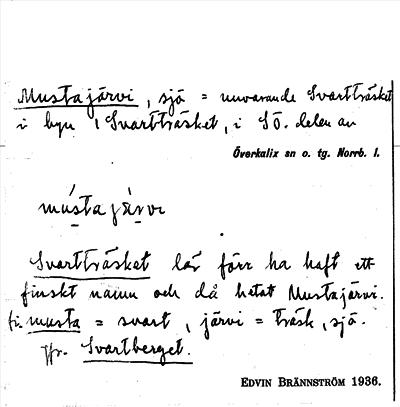 Mustajärvi, sjö = nuvarande Svartträsket
i byn Svartträsket, i SÖ. delen av
Överkalix sn o. tg. Norrb. l.
músta jä̀rvi
Svartträsket lär förr ha haft ett
finskt namn och då hetat Mustajärvi.
fi. musta = svart, järvi = träsk, sjö.
Jfr. Svartberget.
EDVIN BRÄNNSTRÖM 1936.